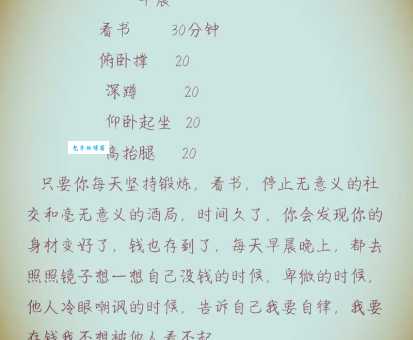 早晨
看书 30分钟
俯卧撑 20
深蹲 20
仰卧起坐 20
高抬腿 20
只要你每天坚持锻炼，看书，停止无意义的社
交和毫无意义的酒局，时间久了，你会发现你的
身材变好了，钱也存到了，每天早晨晚上，都去
照照镜子想一想自己没钱的时候，卑微的时候，
他人冷眼嘲讽的时候，告诉自己我要自律，我要
存钱我不想被他人看不起